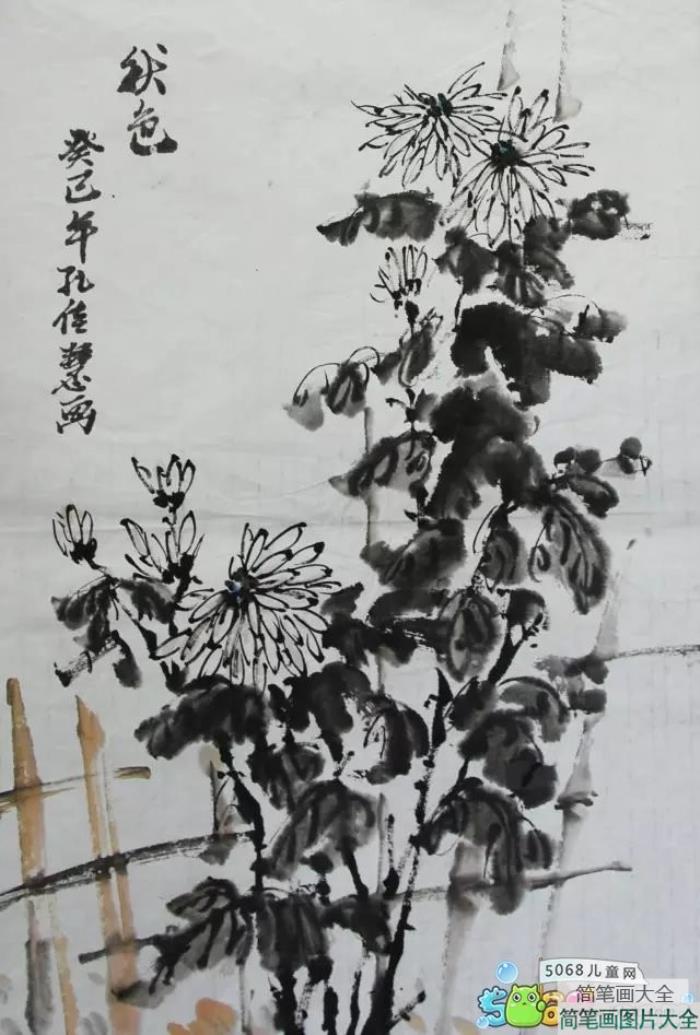 秋色
癸巳年孔佳慧画
5068儿童网
简笔画大全
简笔画图片大全